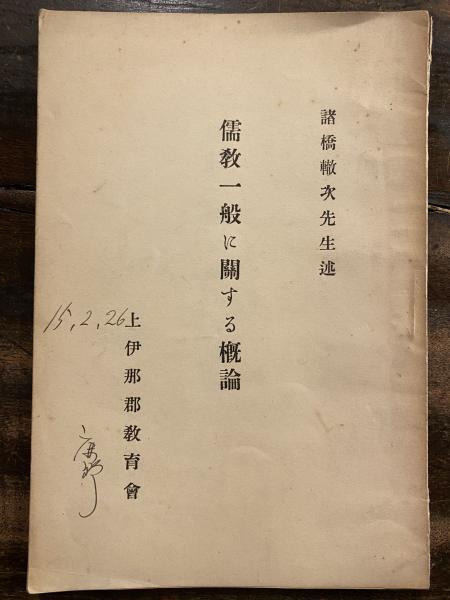 諸橋轍次先生述
儒教一般に關する概論
上伊那郡教育會
15.2.26